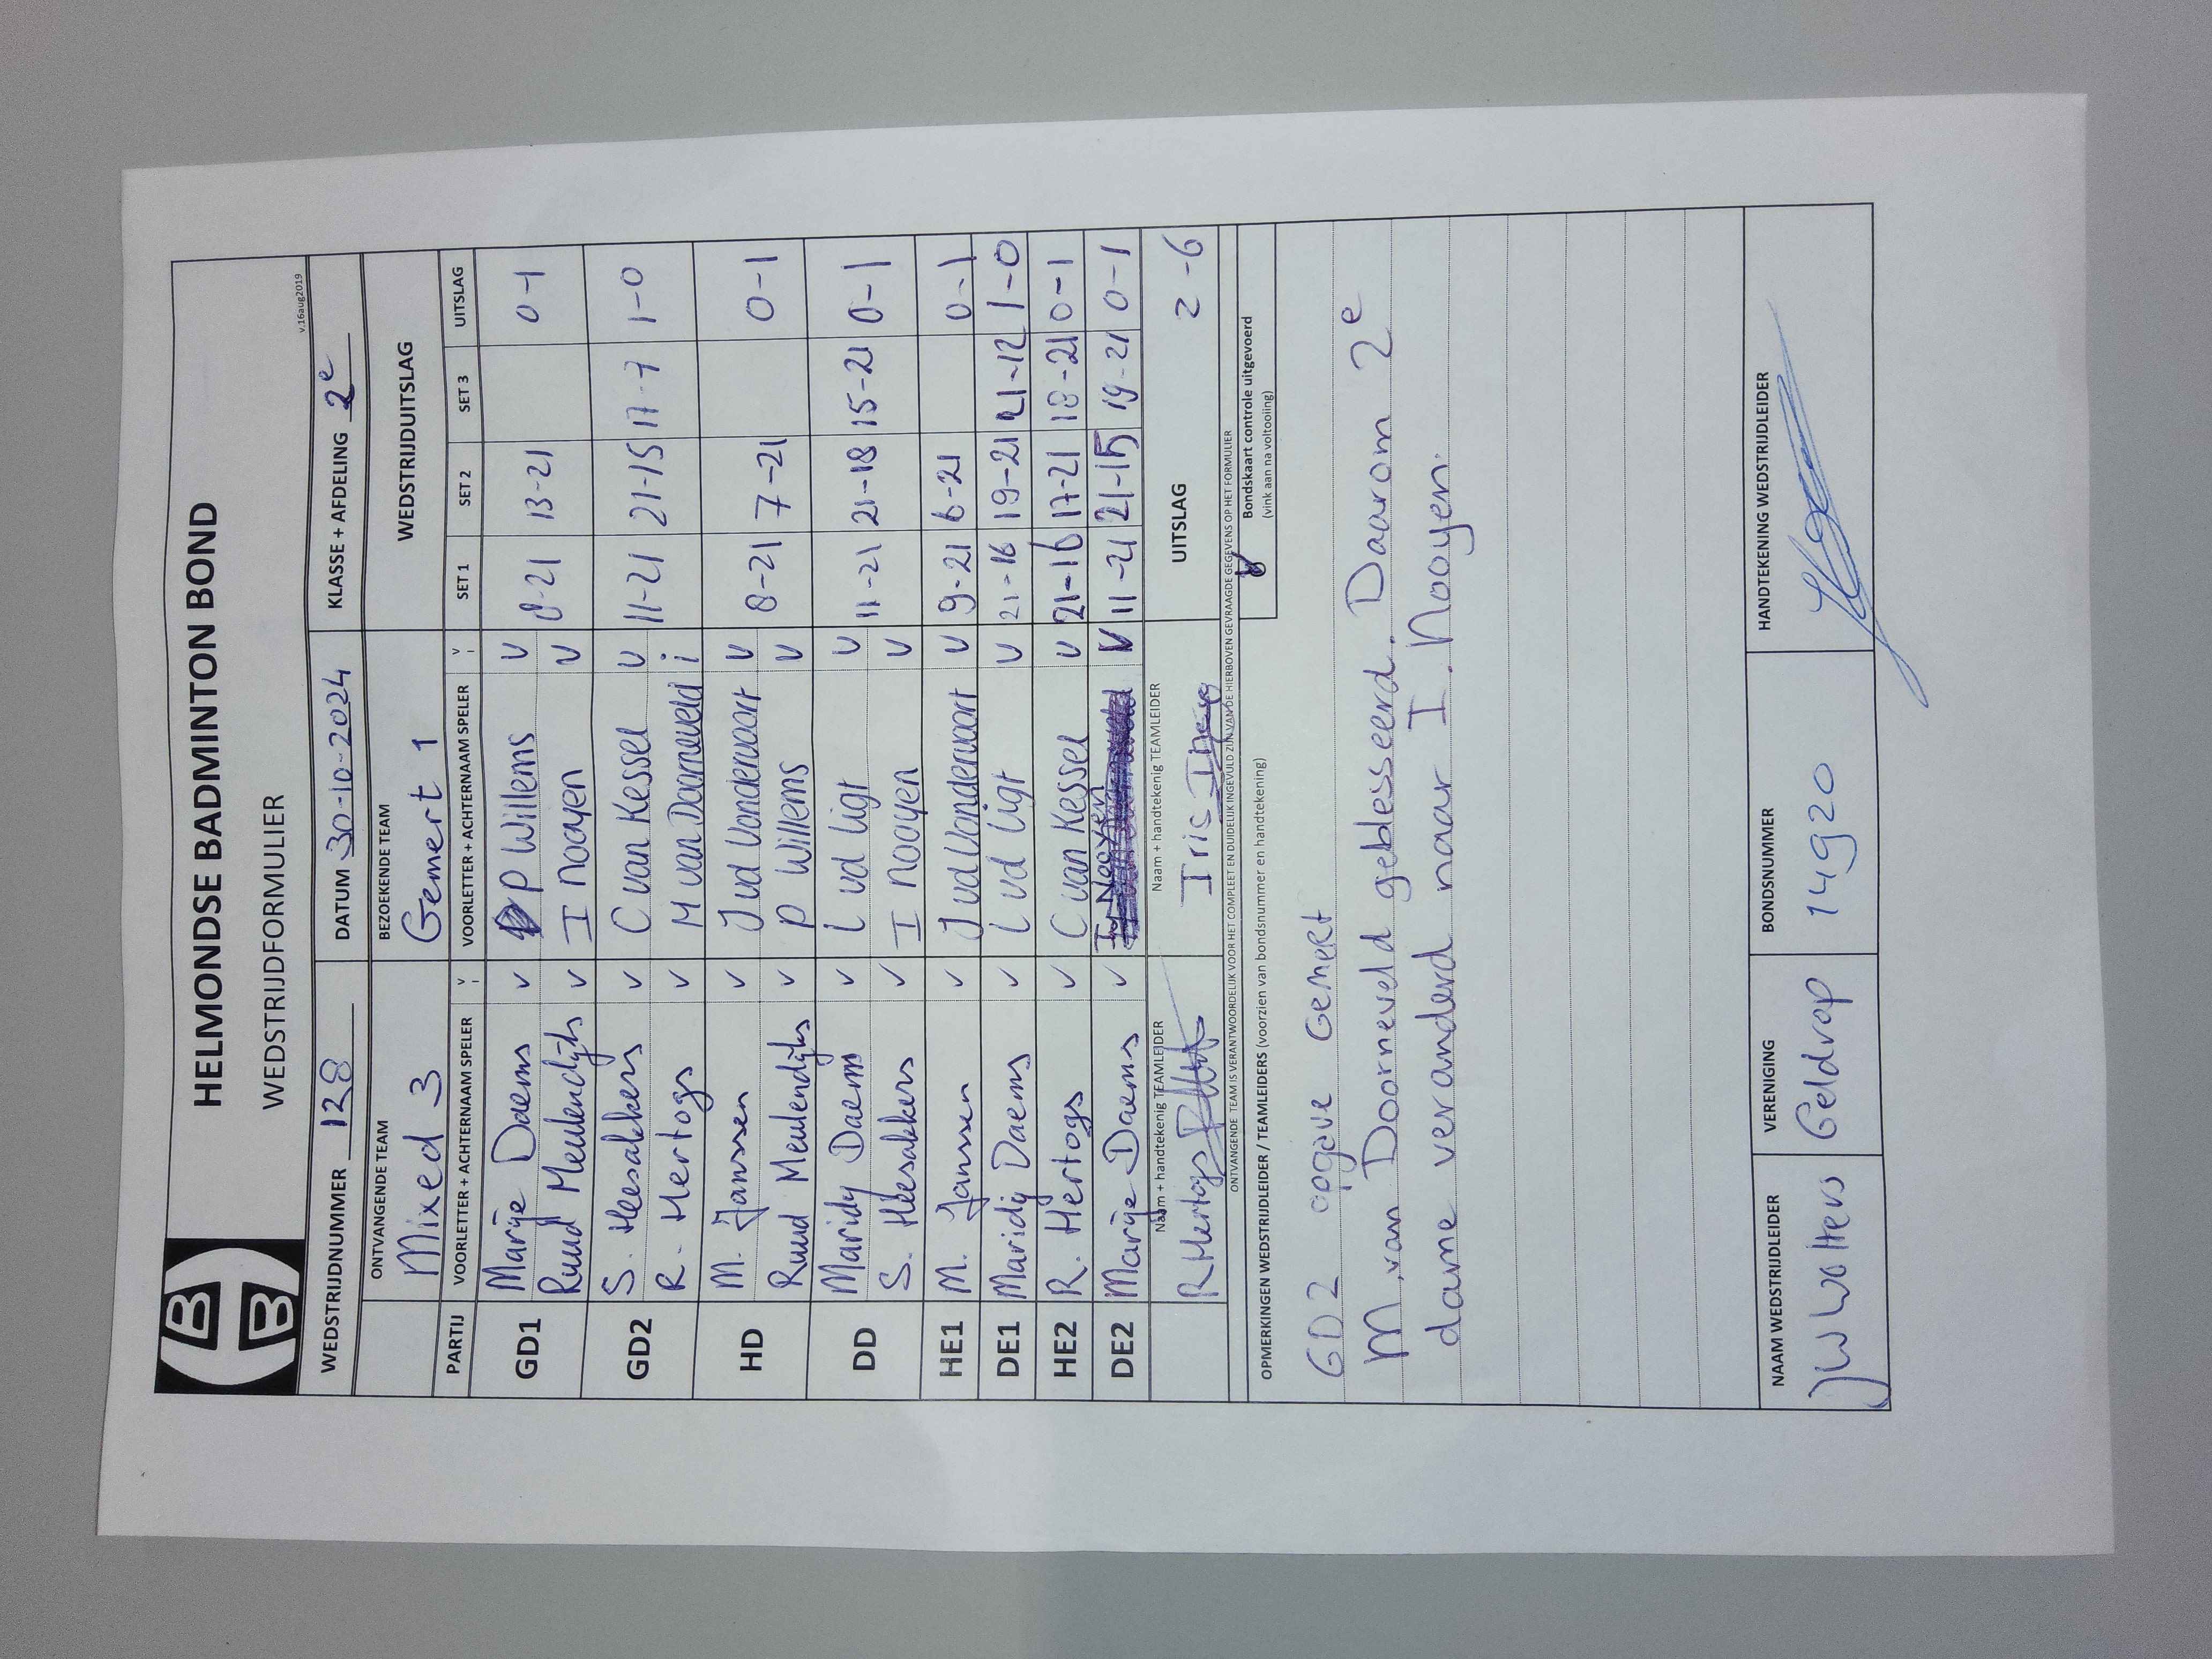 HELMONDSE BADMINTON BOND
WEDSTRIJDFORMULIER
v.16aug2019
WEDSTRIJDNUMMER 128 DATUM 30-10-2024 KLASSE + AFDELING 2e
ONTVANGENDE TEAM BEZOEKENDE TEAM WEDSTRIJDUITSLAG
Mixed 3 Gemert 1
PARTIJ VOORLETTER + ACHTERNAAM SPELER V VOORLETTER + ACHTERNAAM SPELER V SET 1 SET 2 SET 3 UITSLAG
GD1 Marije Daems v P Willems v 8-21 13-21 0-1
Ruud Meulendijks v I Nooyen v
GD2 S. Heesakkers v C van Kessel v 11-21 21-15 17-7 1-0
R. Hertogs v M van Doorneveld i
HD M. Janssen v J vd Vondervoort v 8-21 7-21 0-1
Ruud Meulendijks v P Willems v
DD Maridy Daems v L vd Ligt v 11-21 21-18 15-21 0-1
S. Heesakkers v I Nooyen v
HE1 M. Janssen v J vd Vondervoort v 9-21 6-21 0-1
DE1 Maridy Daems v L vd Ligt v 21-16 19-21 21-12 1-0
HE2 R. Hertogs v C van Kessel v 21-16 17-21 18-21 0-1
DE2 Marije Daems v I Nooyen v 11-21 21-15 19-21 0-1
Naam + handtekenig TEAMLEIDER Naam + handtekenig TEAMLEIDER UITSLAG 2-6
R Hertogs Iris
ONTVANGENDE TEAM IS VERANTWOORDELIJK VOOR HET COMPLEET EN DUIDELIJK INGEVULD ZIJN VAN DE HIERBOVEN GEVRAAGDE GEGEVENS OP HET FORMULIER
OPMERKINGEN WEDSTRIJDLEIDER / TEAMLEIDERS (voorzien van bondsnummer en handtekening) v Bondskaart controle uitgevoerd
(vink aan na voltooiing)
GD2 opgave Gemert
M. van Doorneveld geblesseerd. Daarom 2e
dame veranderd naar I. Nooyen.
NAAM WEDSTRIJDLEIDER VERENIGING BONDSNUMMER HANDTEKENING WEDSTRIJDLEIDER
JW Wolters Geldrop 14920